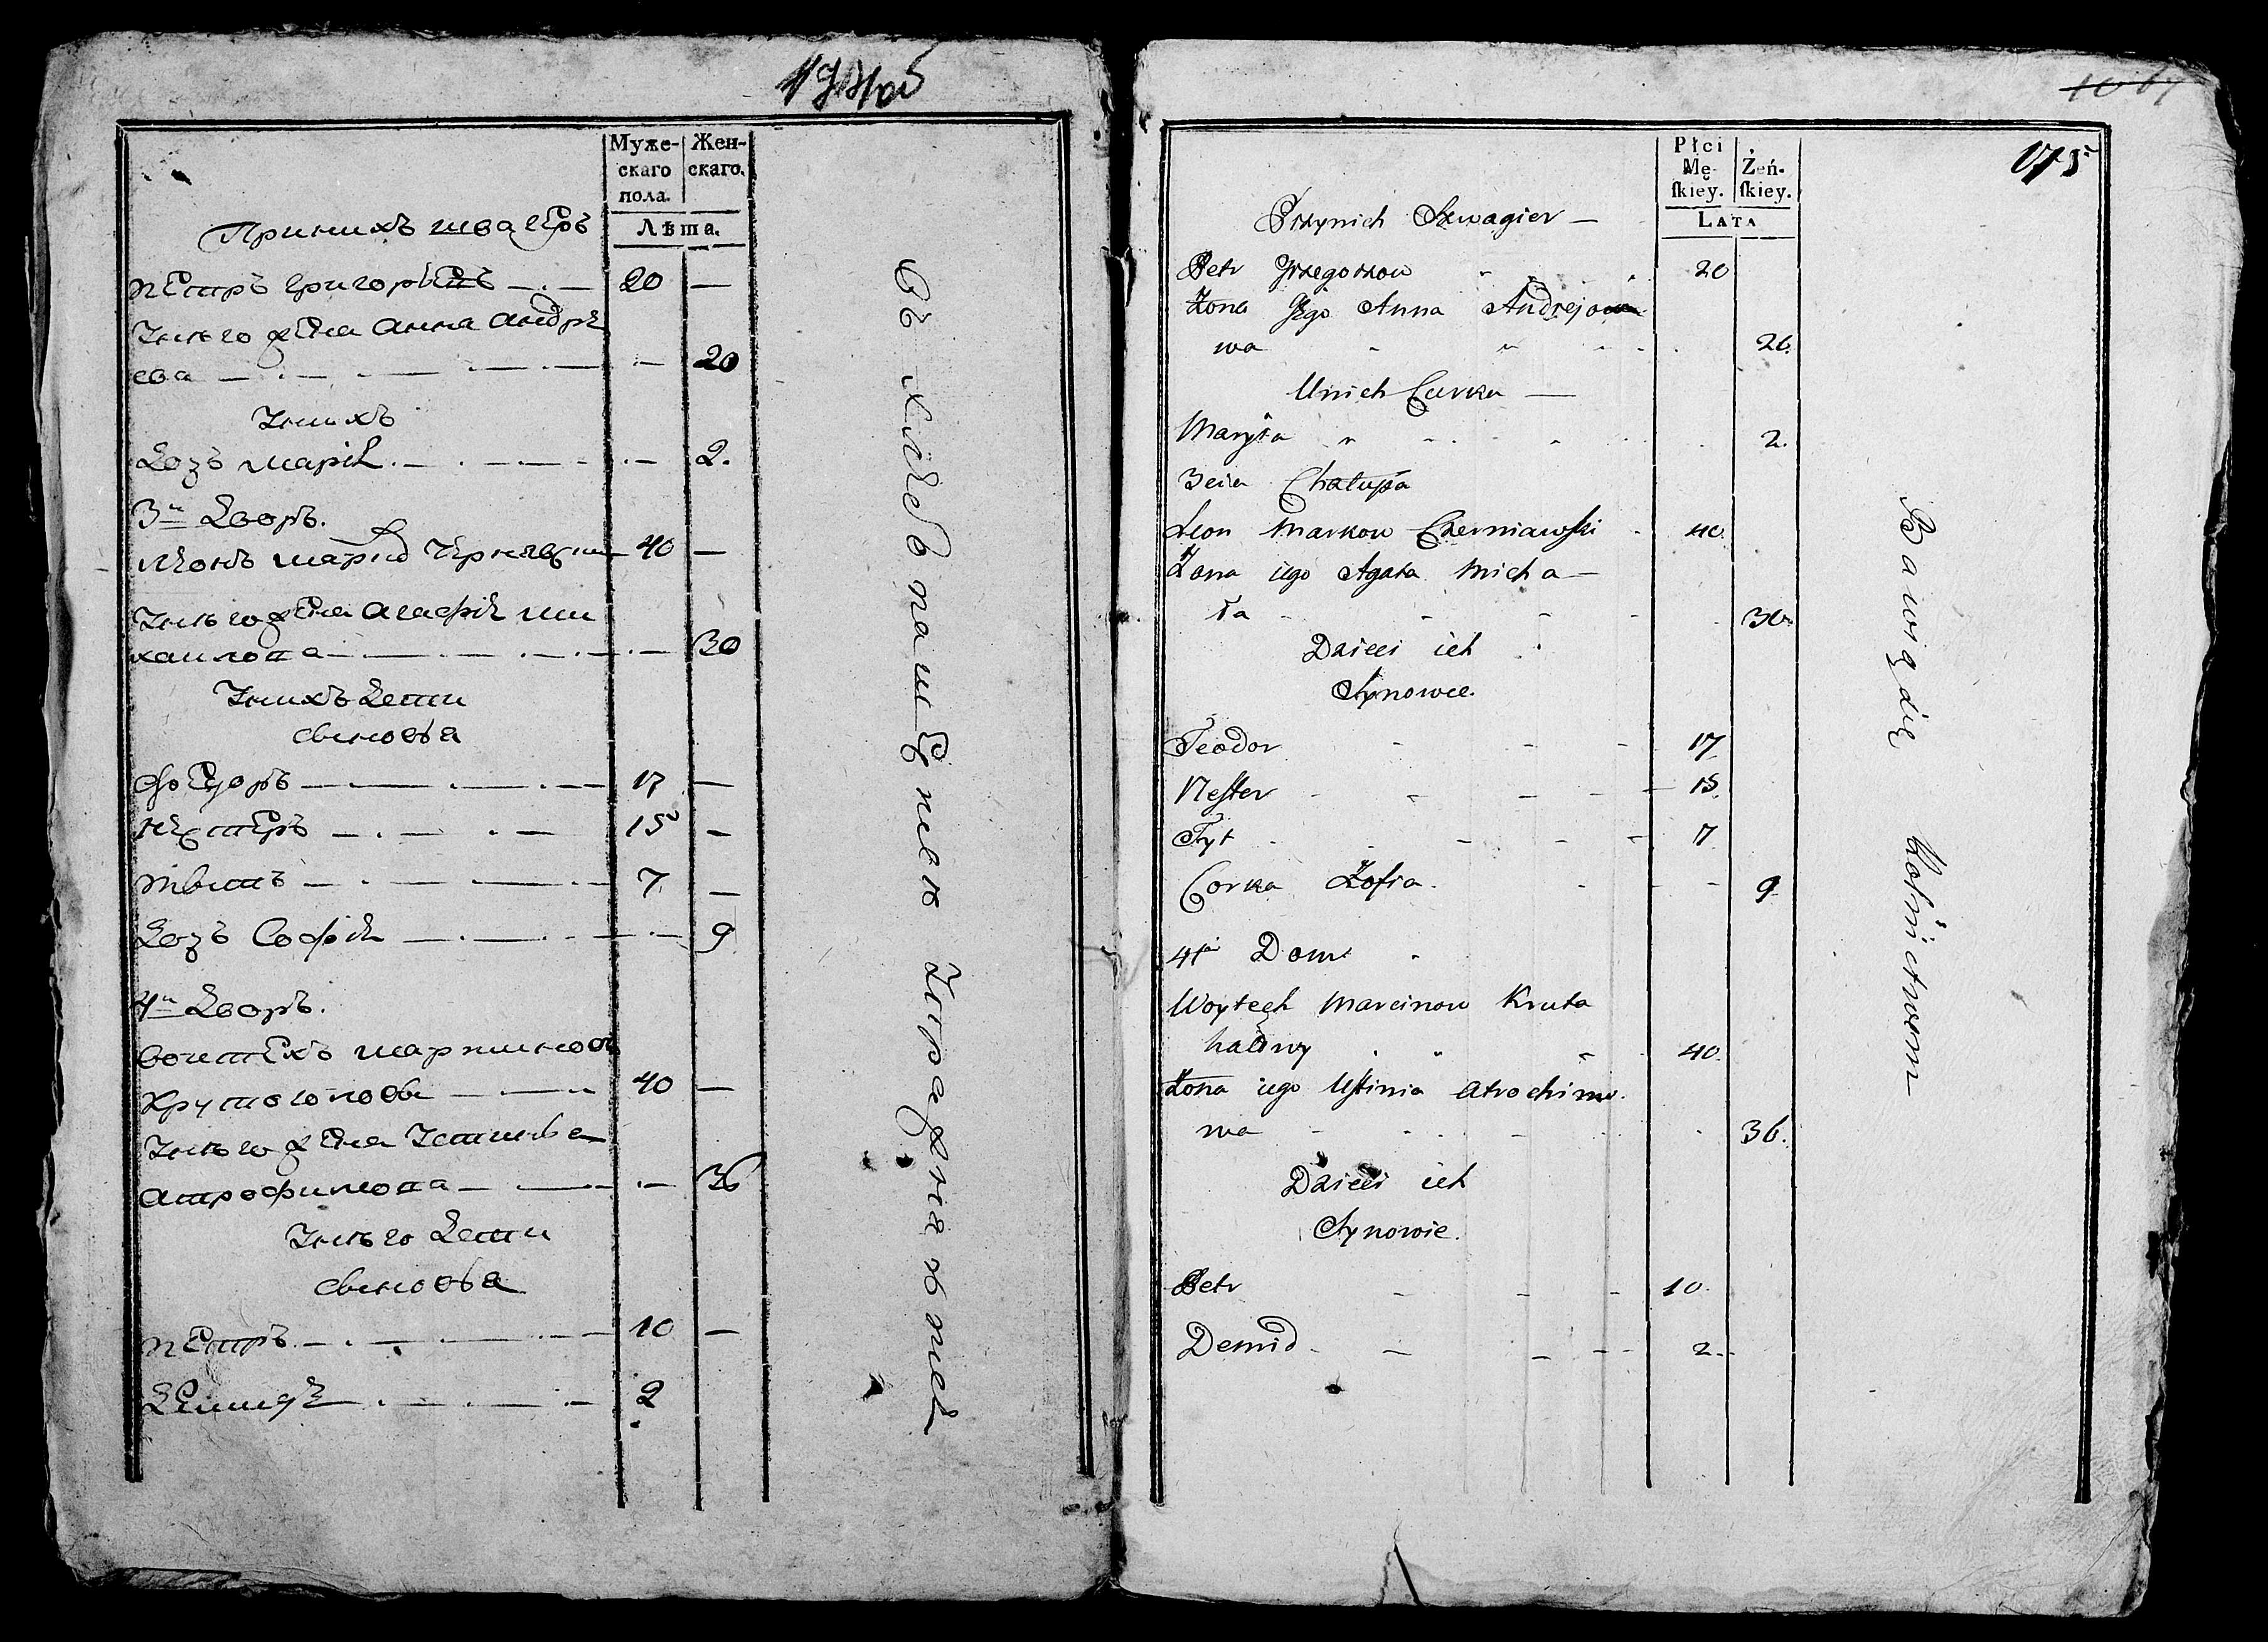 174об
Муже-
скаго
пола.
Жен-
скаго.
Лѣта.
При нихъ швагеръ
Петръ Григорьевъ — 20 —
У него жена Анна Андре
ева — — 20
У нихъ
Дочь Марія. — — 2.
3й Дворъ.
Леонъ Марковъ Чернявски — 40 —
У него жена Агафія Ми
хаилова — — 30
У нихъ дети
сыновья
Фёдоръ — 17 —
Нестеръ — 15 —
Тытъ — 7 —
Дочь Софія — — 9
4й Дворъ.
Войтехъ Мартиновъ
Крутоголовы — 40 —
У него жена Устинья
Атрофимова — — 36
У него дети
сыновья
Петръ — 10 —
Демидъ — 2
Въ хлебопашенню упражняются
1067
175
Płci
Mę-
ſkiey.
Żeń-
ſkiey.
LATA
Przynich Szwagier —
Petr Grzegorzow 20
Żona Jego Anna Andrejo
wa 20.
Unich Curka —
Maryia 2.
3cia Chałupa
Leon Markow Czerniawſki 40.
Żona iego Agata Micha—
ła 30.
Dzieci ich
Synowie.
Teodor 17
Neſter 15
Tyt 7
Corka Zofia. 9
4ta Dom
Woytech Marcinow Kruta
hałowy 40.
Żona iego Uſtinia Atrochimo
wa 36.
Dzieci ich
Synowie.
Petr 10.
Demid 2.
Bawią się Rolnictwem